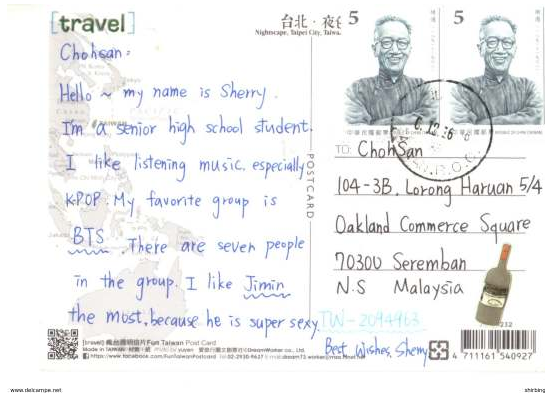 [travel]
台北·夜
Nightscape, Taipei City, Taiwa
5
5
Chohsan:
Hello ~ my name is Sherry.
I'm a senior high school student.
I like listening music. especially
K-POP. My favorite group is
BTS. There are seven people
in the group. I like Jimin
the most, because he is super sexy.
POSTCARD
6.12.16
TO: ChohSan
104-3B, Lorong Haruan 5/4
Oakland Commerce Square
70300 Seremban
N.S Malaysia
TW-2094963
Best Wishes, Sherry
[travel] 瘋台灣明信片 Fun Taiwan Post Card
Made in TAIWAN
https://www.facebook.com/FunTaiwanPostcard
4 711161 540927
www.delcampe.net
shirbing